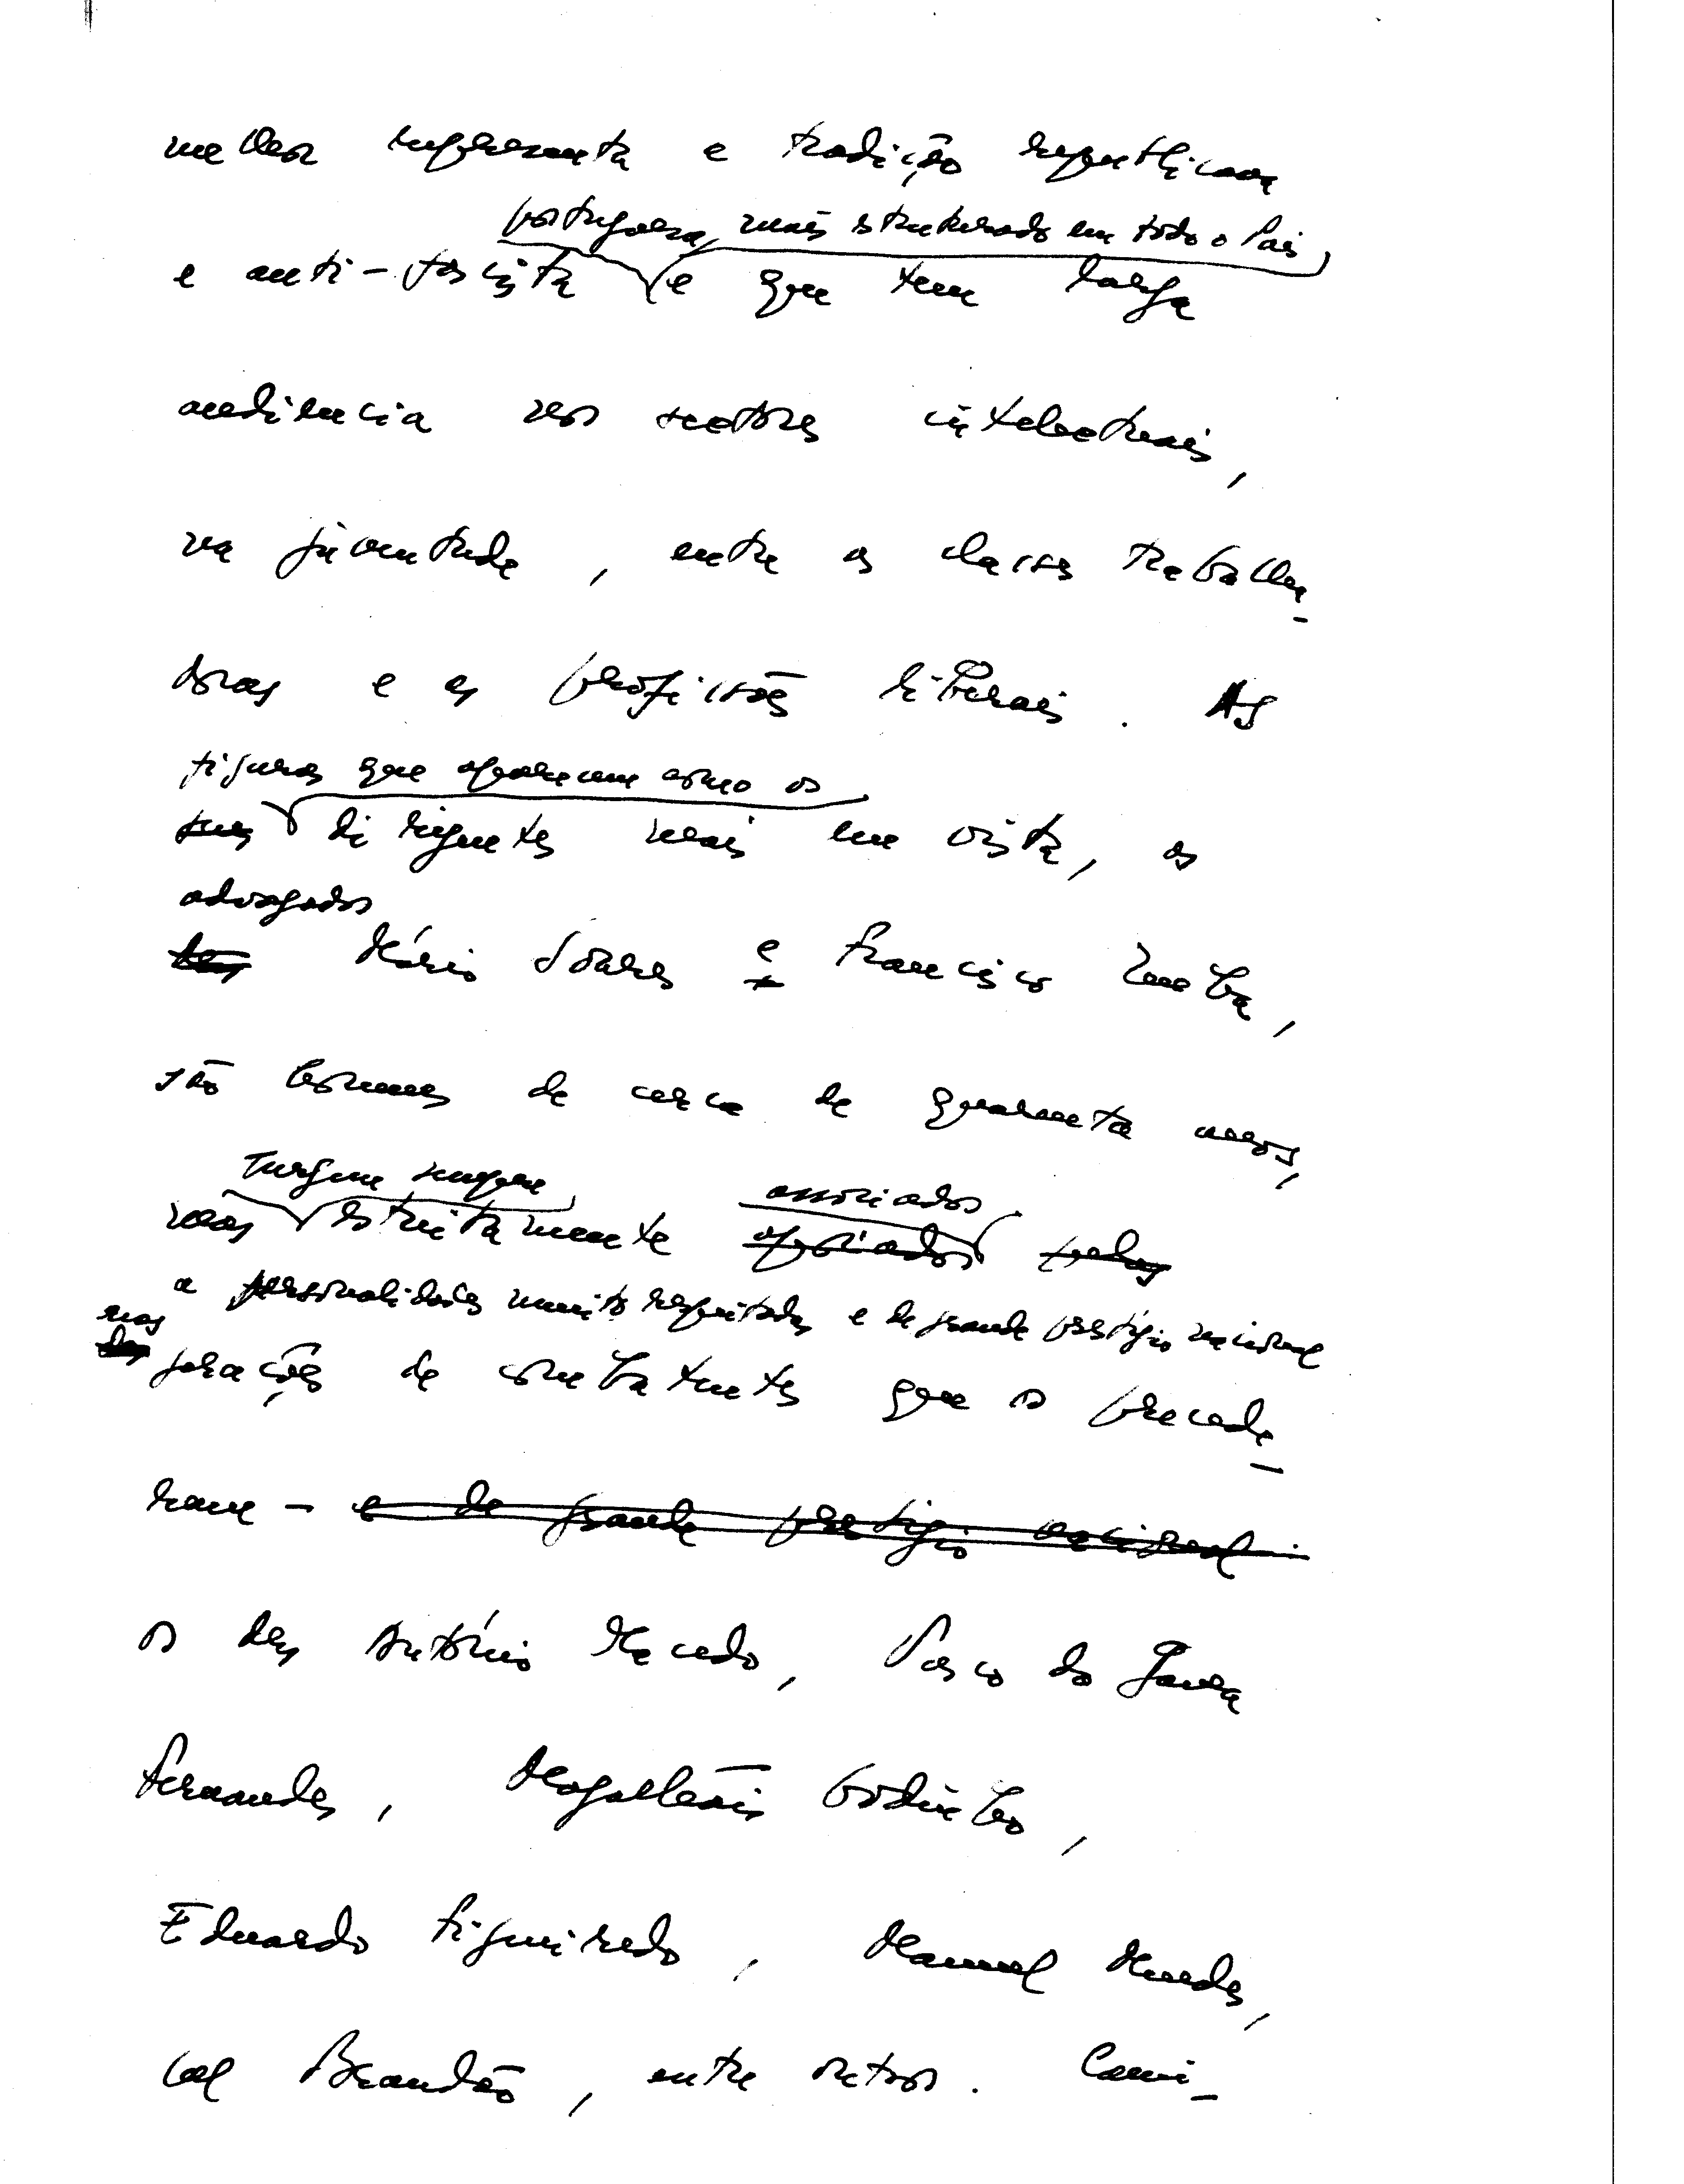 melhor representa a tradição republicana
portuguesa, mais estruturado em todo o País,
e anti-fascista e que tem larga
audiência nos sectores intelectuais,
na juventude, entre as classes trabalha-
doras e as profissões liberais. As
figuras que aparecem como os
suas dirigentes mais em vista, os
advogados
Mário Soares e Francisco Zenha,
são homens de cerca de quarenta anos,
surgem sempre associados
mas estritamente apoiados pelas
a personalidades muito respeitadas e de grande prestígio nacional
nas
das gerações de combatentes que os precede-
ram - e de grande prestígio nacional
os drs António Macedo, Vasco da Gama
Fernandes, Magalhães Godinho,
Eduardo Figueiredo, Manuel Mendes,
Cal Brandão, entre outros. Cami-